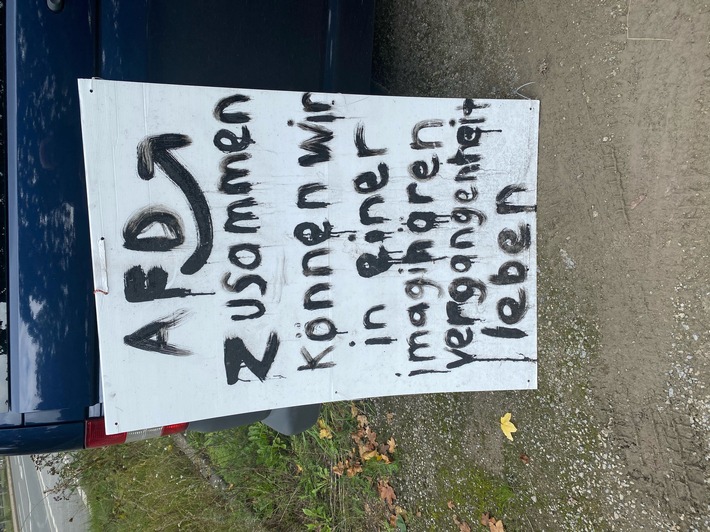 AFD
Zusammen
können wir
in einer
imaginären
vergangenheit
leben